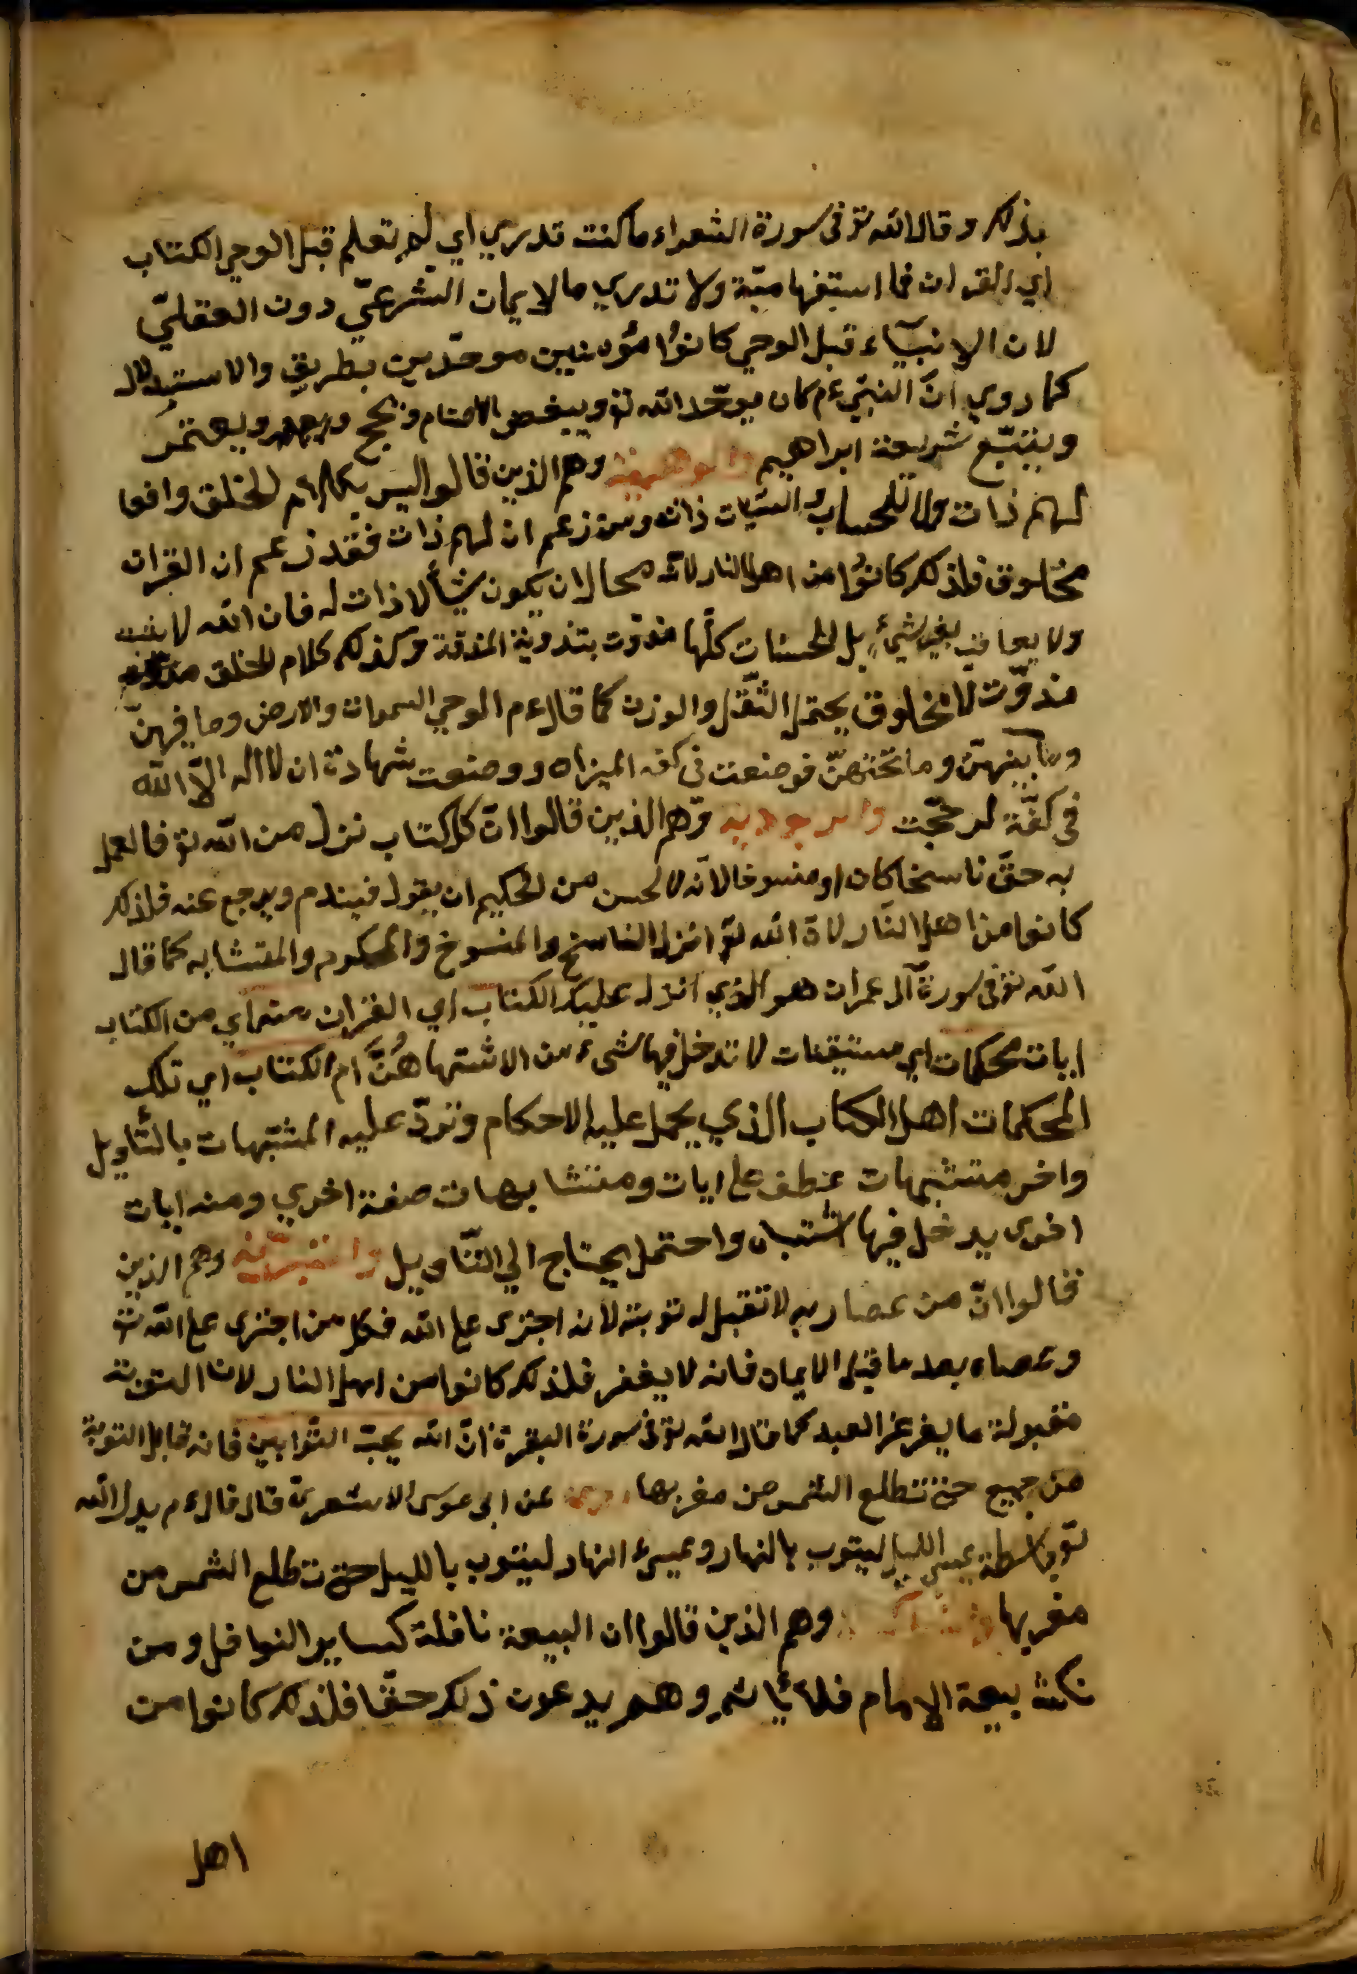 بذلك وقال الله تع فى سورة الشعراء ما كنت تدري اي لم تعلم قبل الوحي الكتاب
اي القران فما استفهامية ولا تدري ما الايمان الشرعيّ دون العقليّ
لان الانبيآء قبل الوحي كانوُا مؤمنين موحّدين بطريق والاستدلال
كما روي انّ النبيّ عم كان يوحّد الله تع ويبغض الاصنام ويحج ويعتمرُ
ويتبّع شريعة ابراهيم وهم الذين قالوا ليس لكلام الخلق وافعا
لهم ذات ولا للحساب والسيات ذات ومن زعم ان لهم ذات فقد زعم ان القران
مخلوق فلذلك كانوُا من اهل النار لانّه محال ان يكون شيأ لا ذات له فان الله لا
ولا يعاقب بغير شيءٍ بل الحسنات كلّها مذوّت بتذوية وكذلك كلام الخلق
مذوّت لا مخلوق يحتمل الثّقل والوزن كما قال عم الوحي السموات والارض وما فيهنّ
وما بينهنّ وما تحتهنّ فوضعت فى كفه الميزان ووضعت شهادة ان لا اله الاّ الله
فى كفّة لرجّحت وهم الذين قالوا انّ كل كتاب نزل من الله تع فالعمل
به حقّ ناسخا كان او منسوخا لانّه لا لحسن من الحكيم ان يقول فيندم ويرجع عنه فلذلك
كانوا من اهل النّار لانّ الله تع انزل الناسخ والمنسوخ والمحكوم والمتشابه كما قال
الله تع فى سورة آل عمران هو الذي انزل عليك الكتاب اي القران منه اي من الكتاب
ايات محكمات اي مستيقنات لا تدخل فيها شىء من الاشتها هُنَّ ام الكتاب اي تلك
المحكمات اهل الكتاب الذي يحمل عليه الاحكام وتردّ عليه المشتبهات بالتّأويل
واخر متشبهات عطف على ايات ومتشابهات صفة اخري ومنه ايات
اخرى يدخل فيها اشتباه واحتمل يحتاج الي التّاويل وهم الذين
قالوا انّ من عصا ربه لا تقبل له توبته لانه اجترى على الله فكل من اجترى على الله تع
وعصاه بعد ما قبل الايمان فانه لا يغفر فلذلك كانوا من اهل النار لان التوبة
مقبولة ما يغرغر العبد كما قال الله تع فى سورة البقرة انّ الله يحبّ التوّابين فانه قابل التوبة
من جميع حتى تطلع الشمس من مغربها عن ابى موسى الاشعريّ قال قال عم يد الله
تع باسطة عسى الليل ليتوب بالنهار وعسىء النهار ليتوب بالليل حتى تطلع الشمس من
مغربها وهم الذين قالوا ان البيعة نافلة كساير النوافل ومن
نكث بيعة الامام فلا يأثم وهم يدعون ذلك حقّا فلذلك كانوا من
اهل